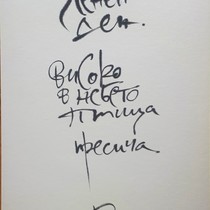 ден.
високо
в небето
птица
пресича.